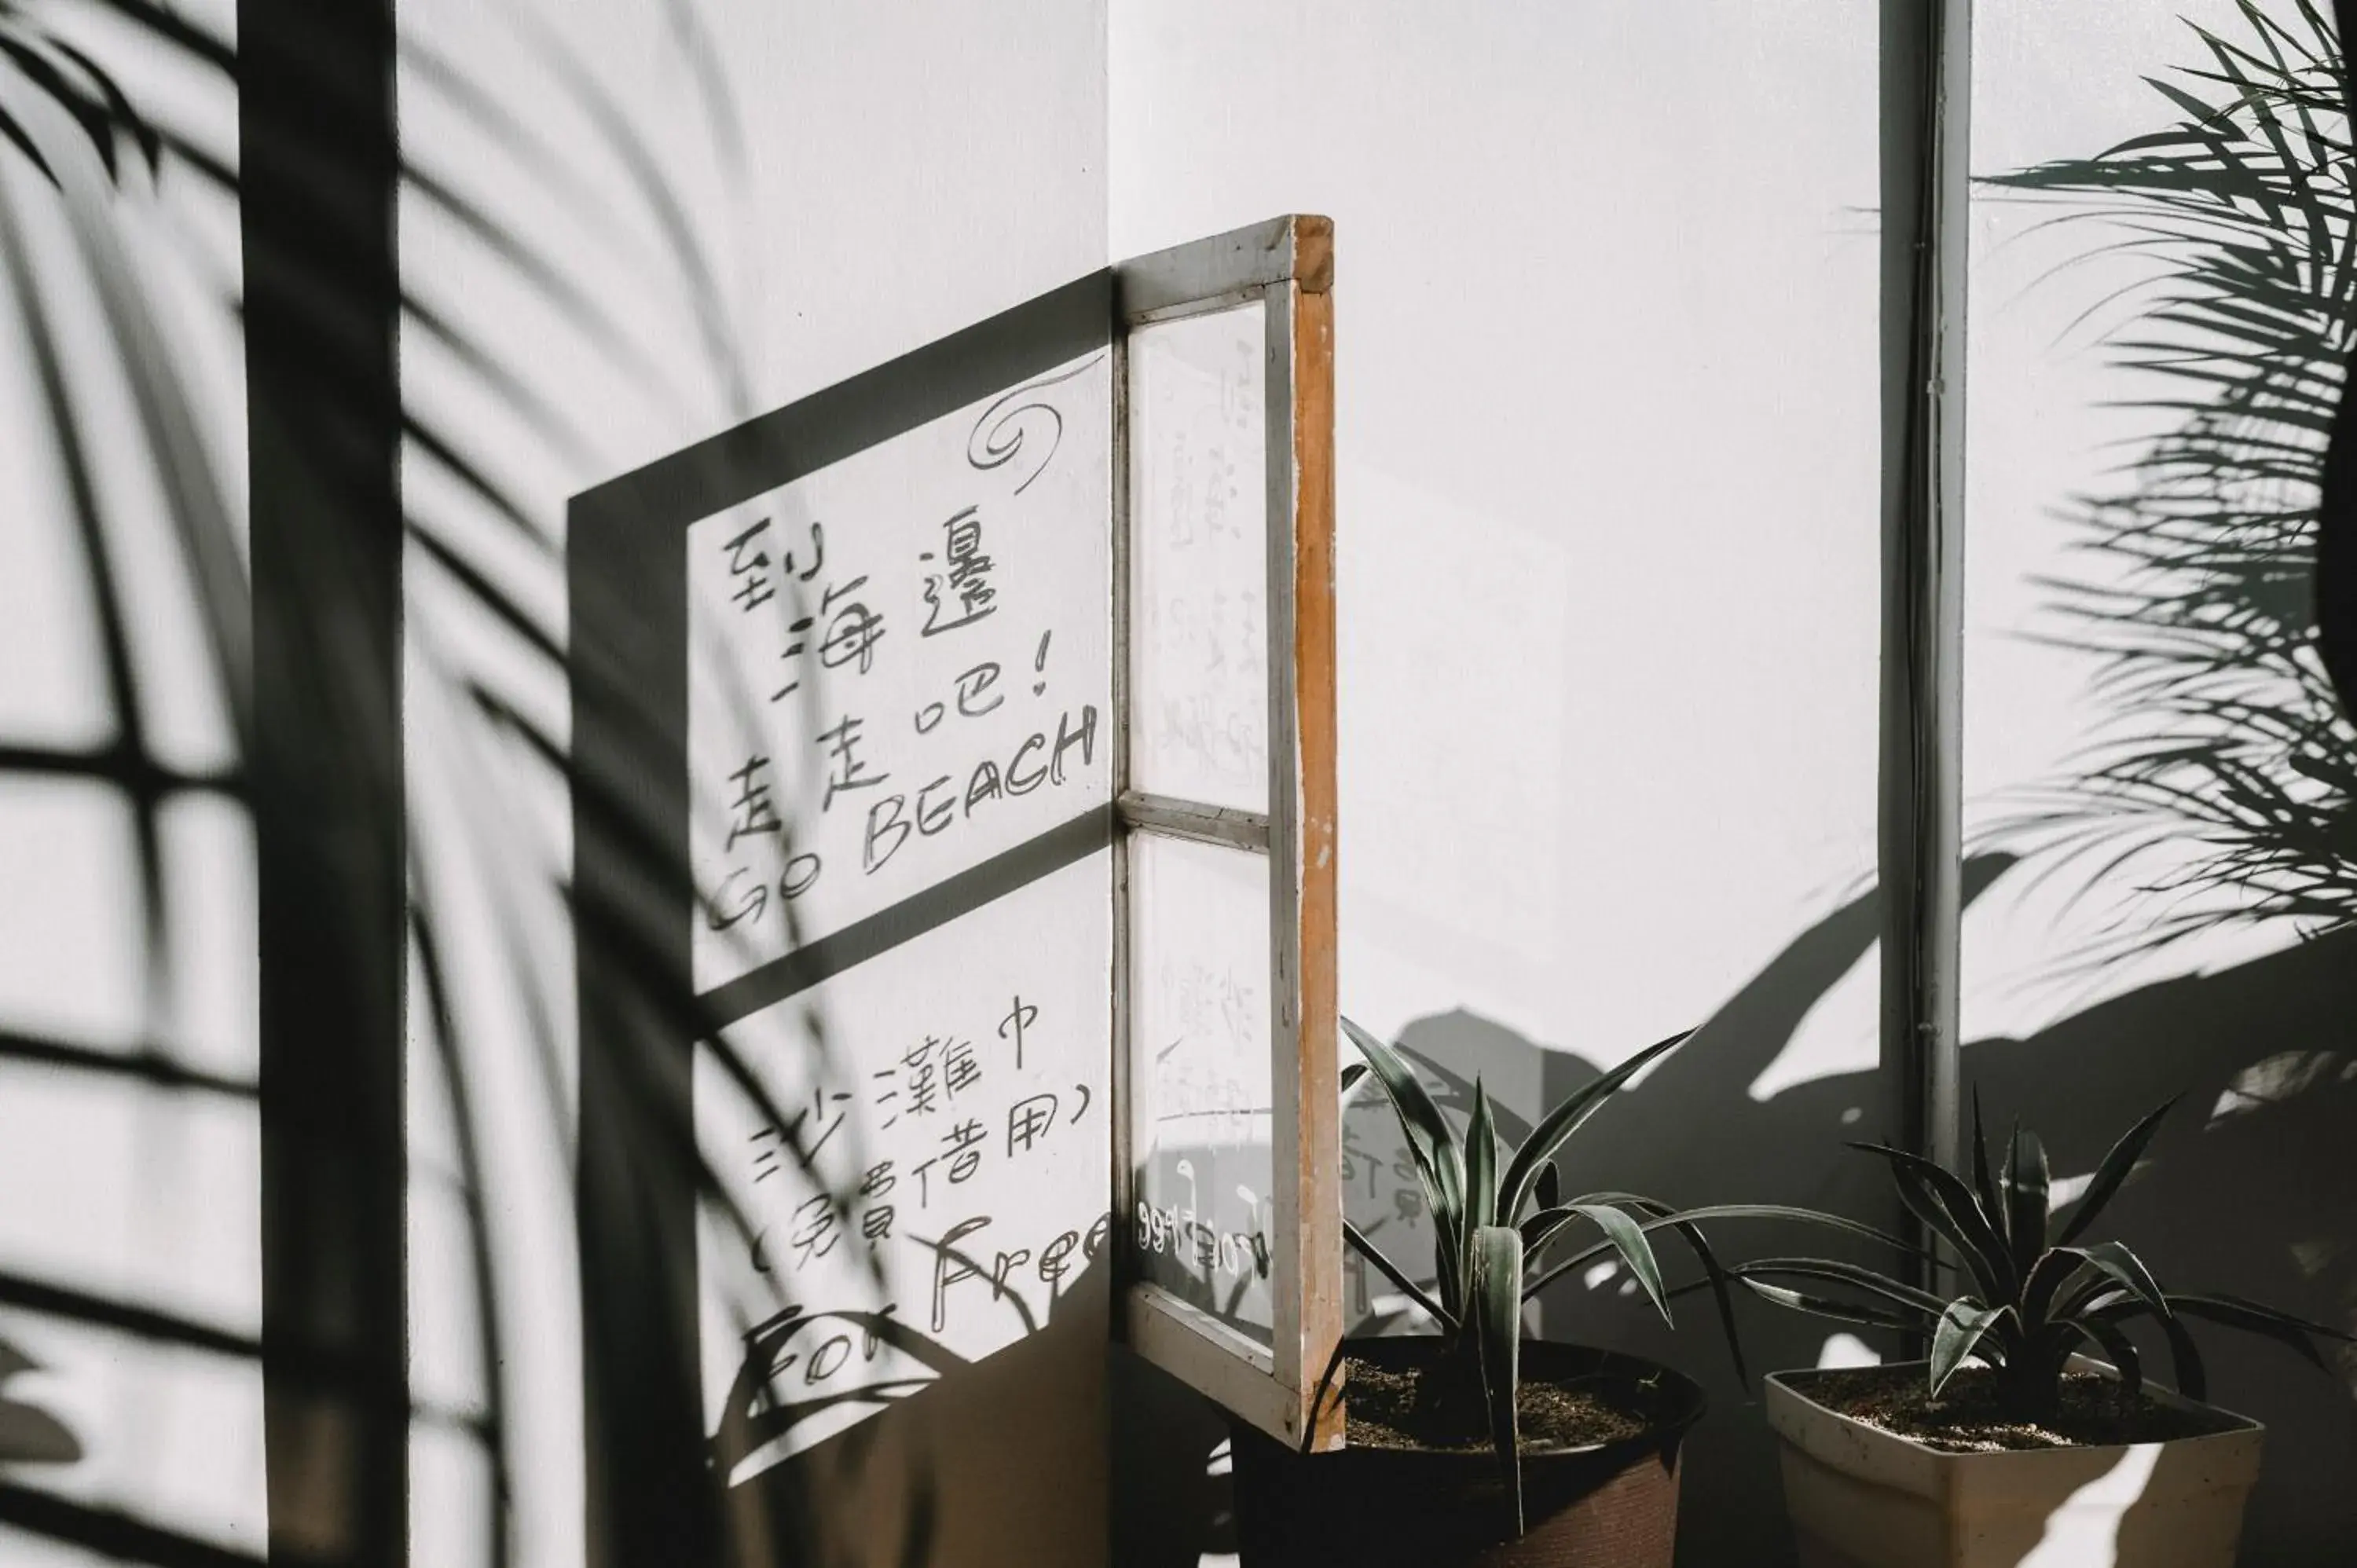 到海邊
走走吧!
GO BEACH
沙灘巾
(免費借用)
For Free